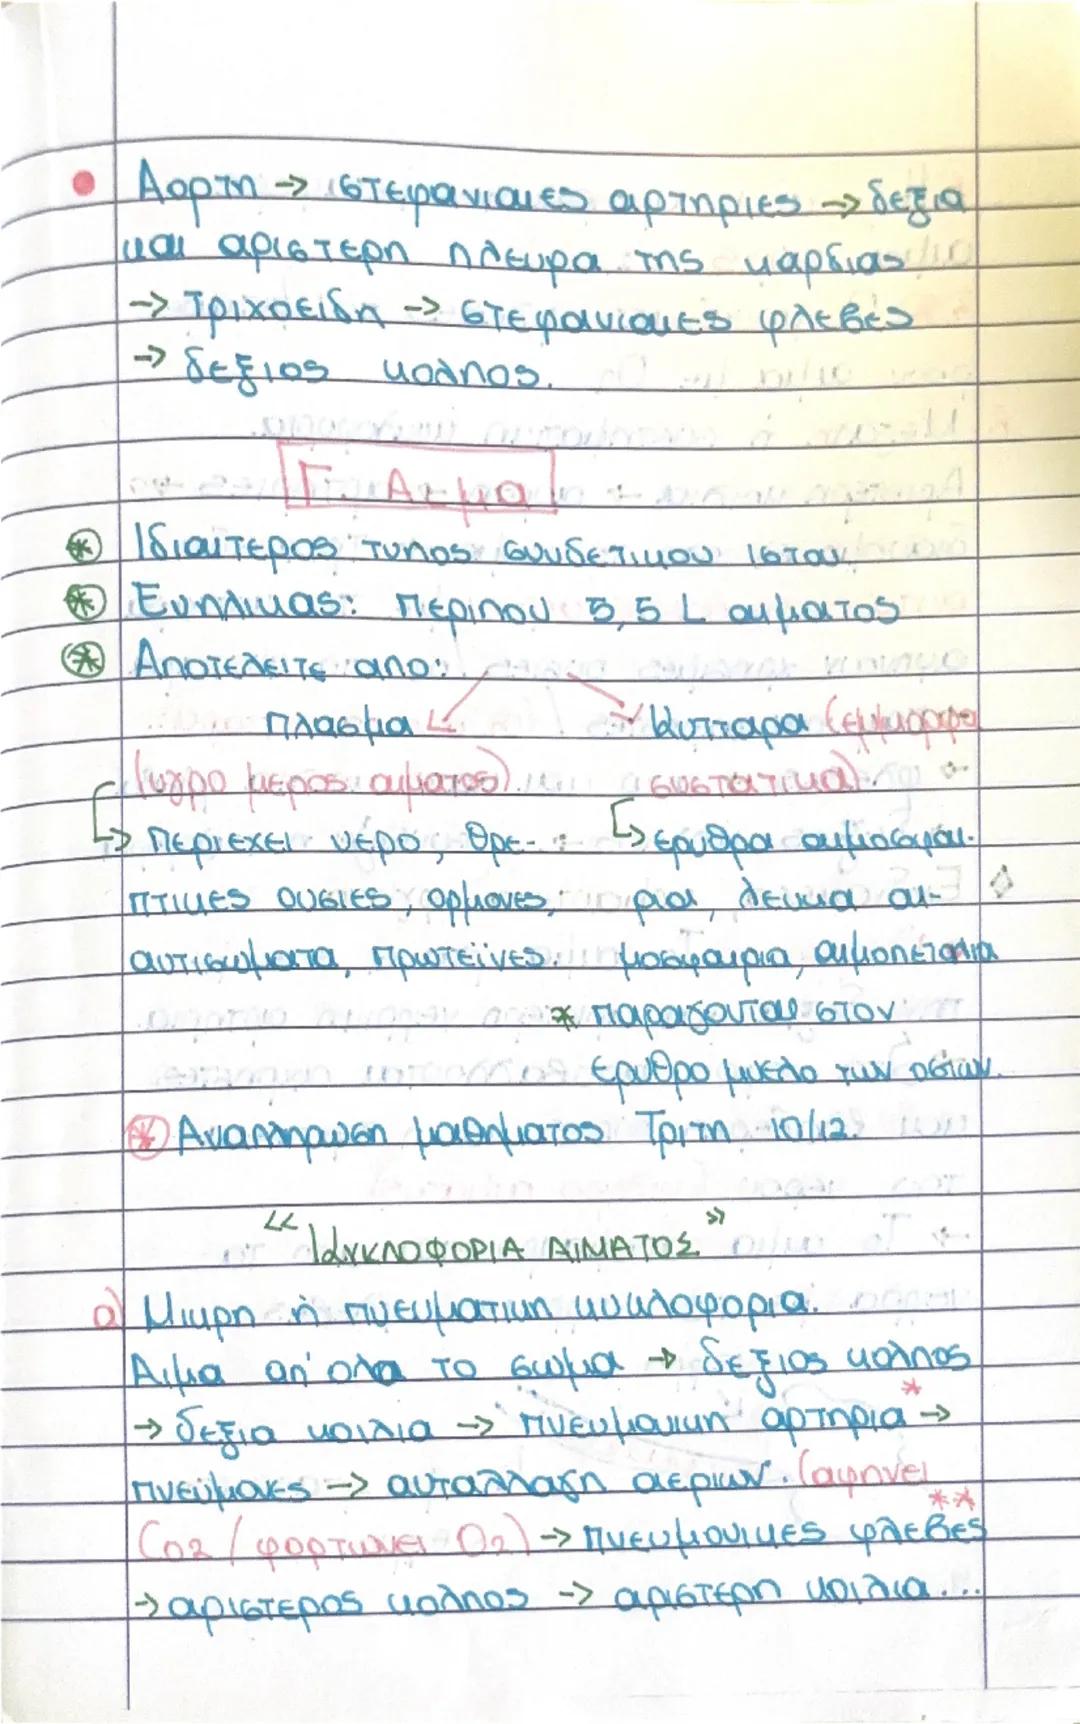 • Αορτη → στεφανιαιες αρτηριες → δεξια
και αριστερη πλευρα της καρδιας
→ τριχοειδη → στεφανιαιες φλεβες
→ δεξιος κολπος.
Γ. Αιμα
* Ιδιαιτερος τυπος συνδετικου ιστου
* Ενηλικας: περιπου 5,5 L αιματος
* Αποτελειτε απο:
πλασμα κυτταρα (εμμορφα
(υγρο μερος αιματος). συστατικα).
↳ περιεχει νερο, θρε- ↳ ερυθρα αιμοσφαι-
πτικες ουσιες, ορμονες, ρια, λευκα αι-
αντισωματα, πρωτεϊνες. μοσφαιρια, αιμοπεταλια
* παραγονται στον
ερυθρο μυελο των οστων.
* Αναπληρωση μαθηματος Τριτη 10/12.
“ ΚΥΚΛΟΦΟΡΙΑ ΑΙΜΑΤΟΣ ”
α) Μικρη ή πνευματικη κυκλοφορια.
Αιμα απ' ολα το σωμα → δεξιος κολπος
→ δεξια κοιλια → πνευμονικη αρτηρια* →
πνεύμονες → ανταλλαγη αεριων. (αφηνει
CO2 / φορτωνει O2) → πνευμονικες φλεβες**
→ αριστερος κολπος → αριστερη κοιλια...